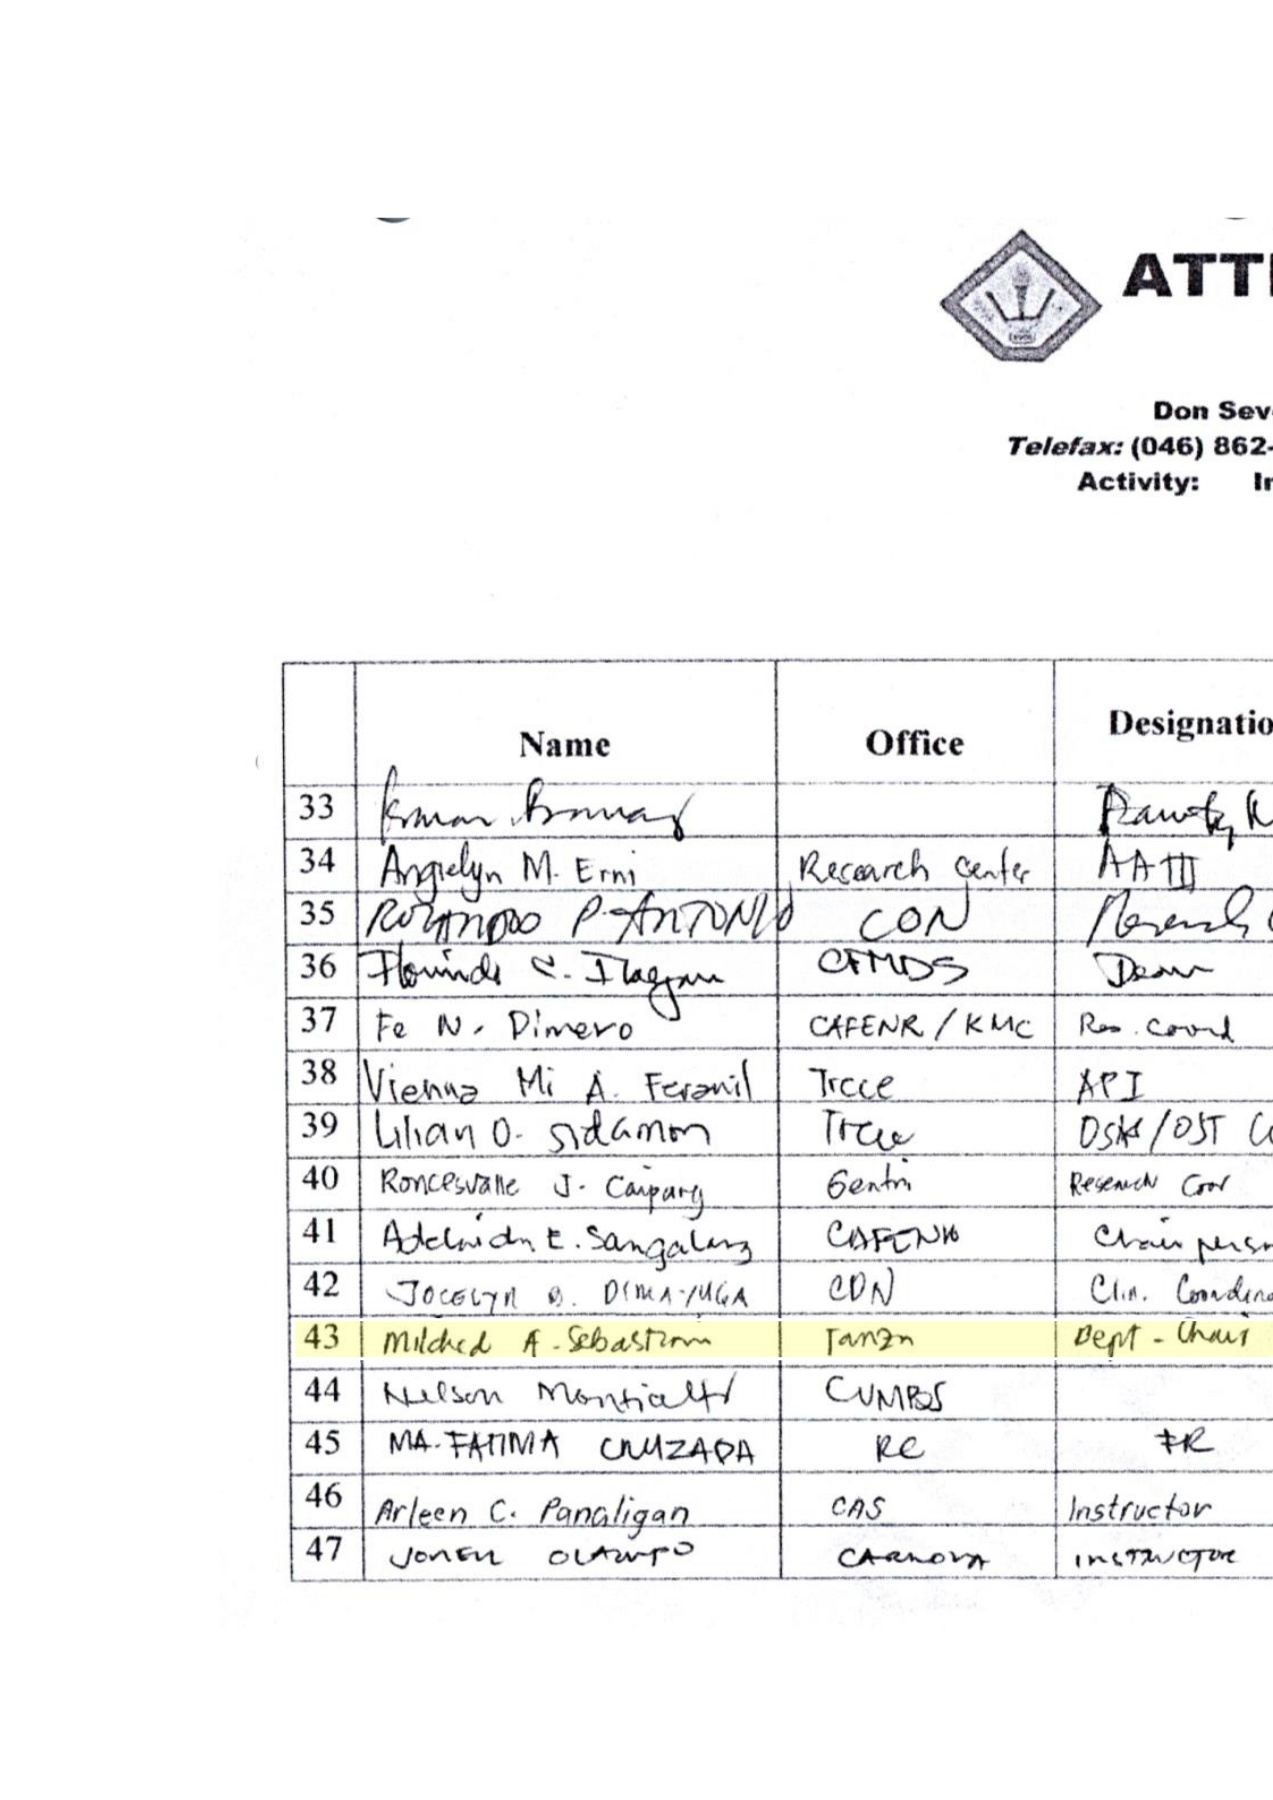 ATT
Don Sev
Telefax: (046) 862-
Activity: In
Name Office Designatio
33
34 Angielyn M. Erni Research Center AA III
35 ROLANDO P. ANTONIO CON Research
36 Florindo C. Ilagan CFMDS Dean
37 Fe N. Dimero CAFENR / KMC Res. Coord
38 Vienna Mi A. Feranil Trece API
39 Lilian O. Sidamon Trece OSAS/OJT
40 Roncesvalle J. Caipang Gentri Research Coor
41 Adelaida E. Sangalang CAFENR Chairperson
42 JOCELYN B. DIMAYUGA CON Clin. Coordina
43 Mildred A. Sebastian Tanza Dept - Chair
44 Nelson Montialto CVMBS
45 MA. FATIMA CRUZADA RC FR
46 Arleen C. Panaligan CAS Instructor
47 JOMEL OLAYMPO CARMONA INSTRUCTOR